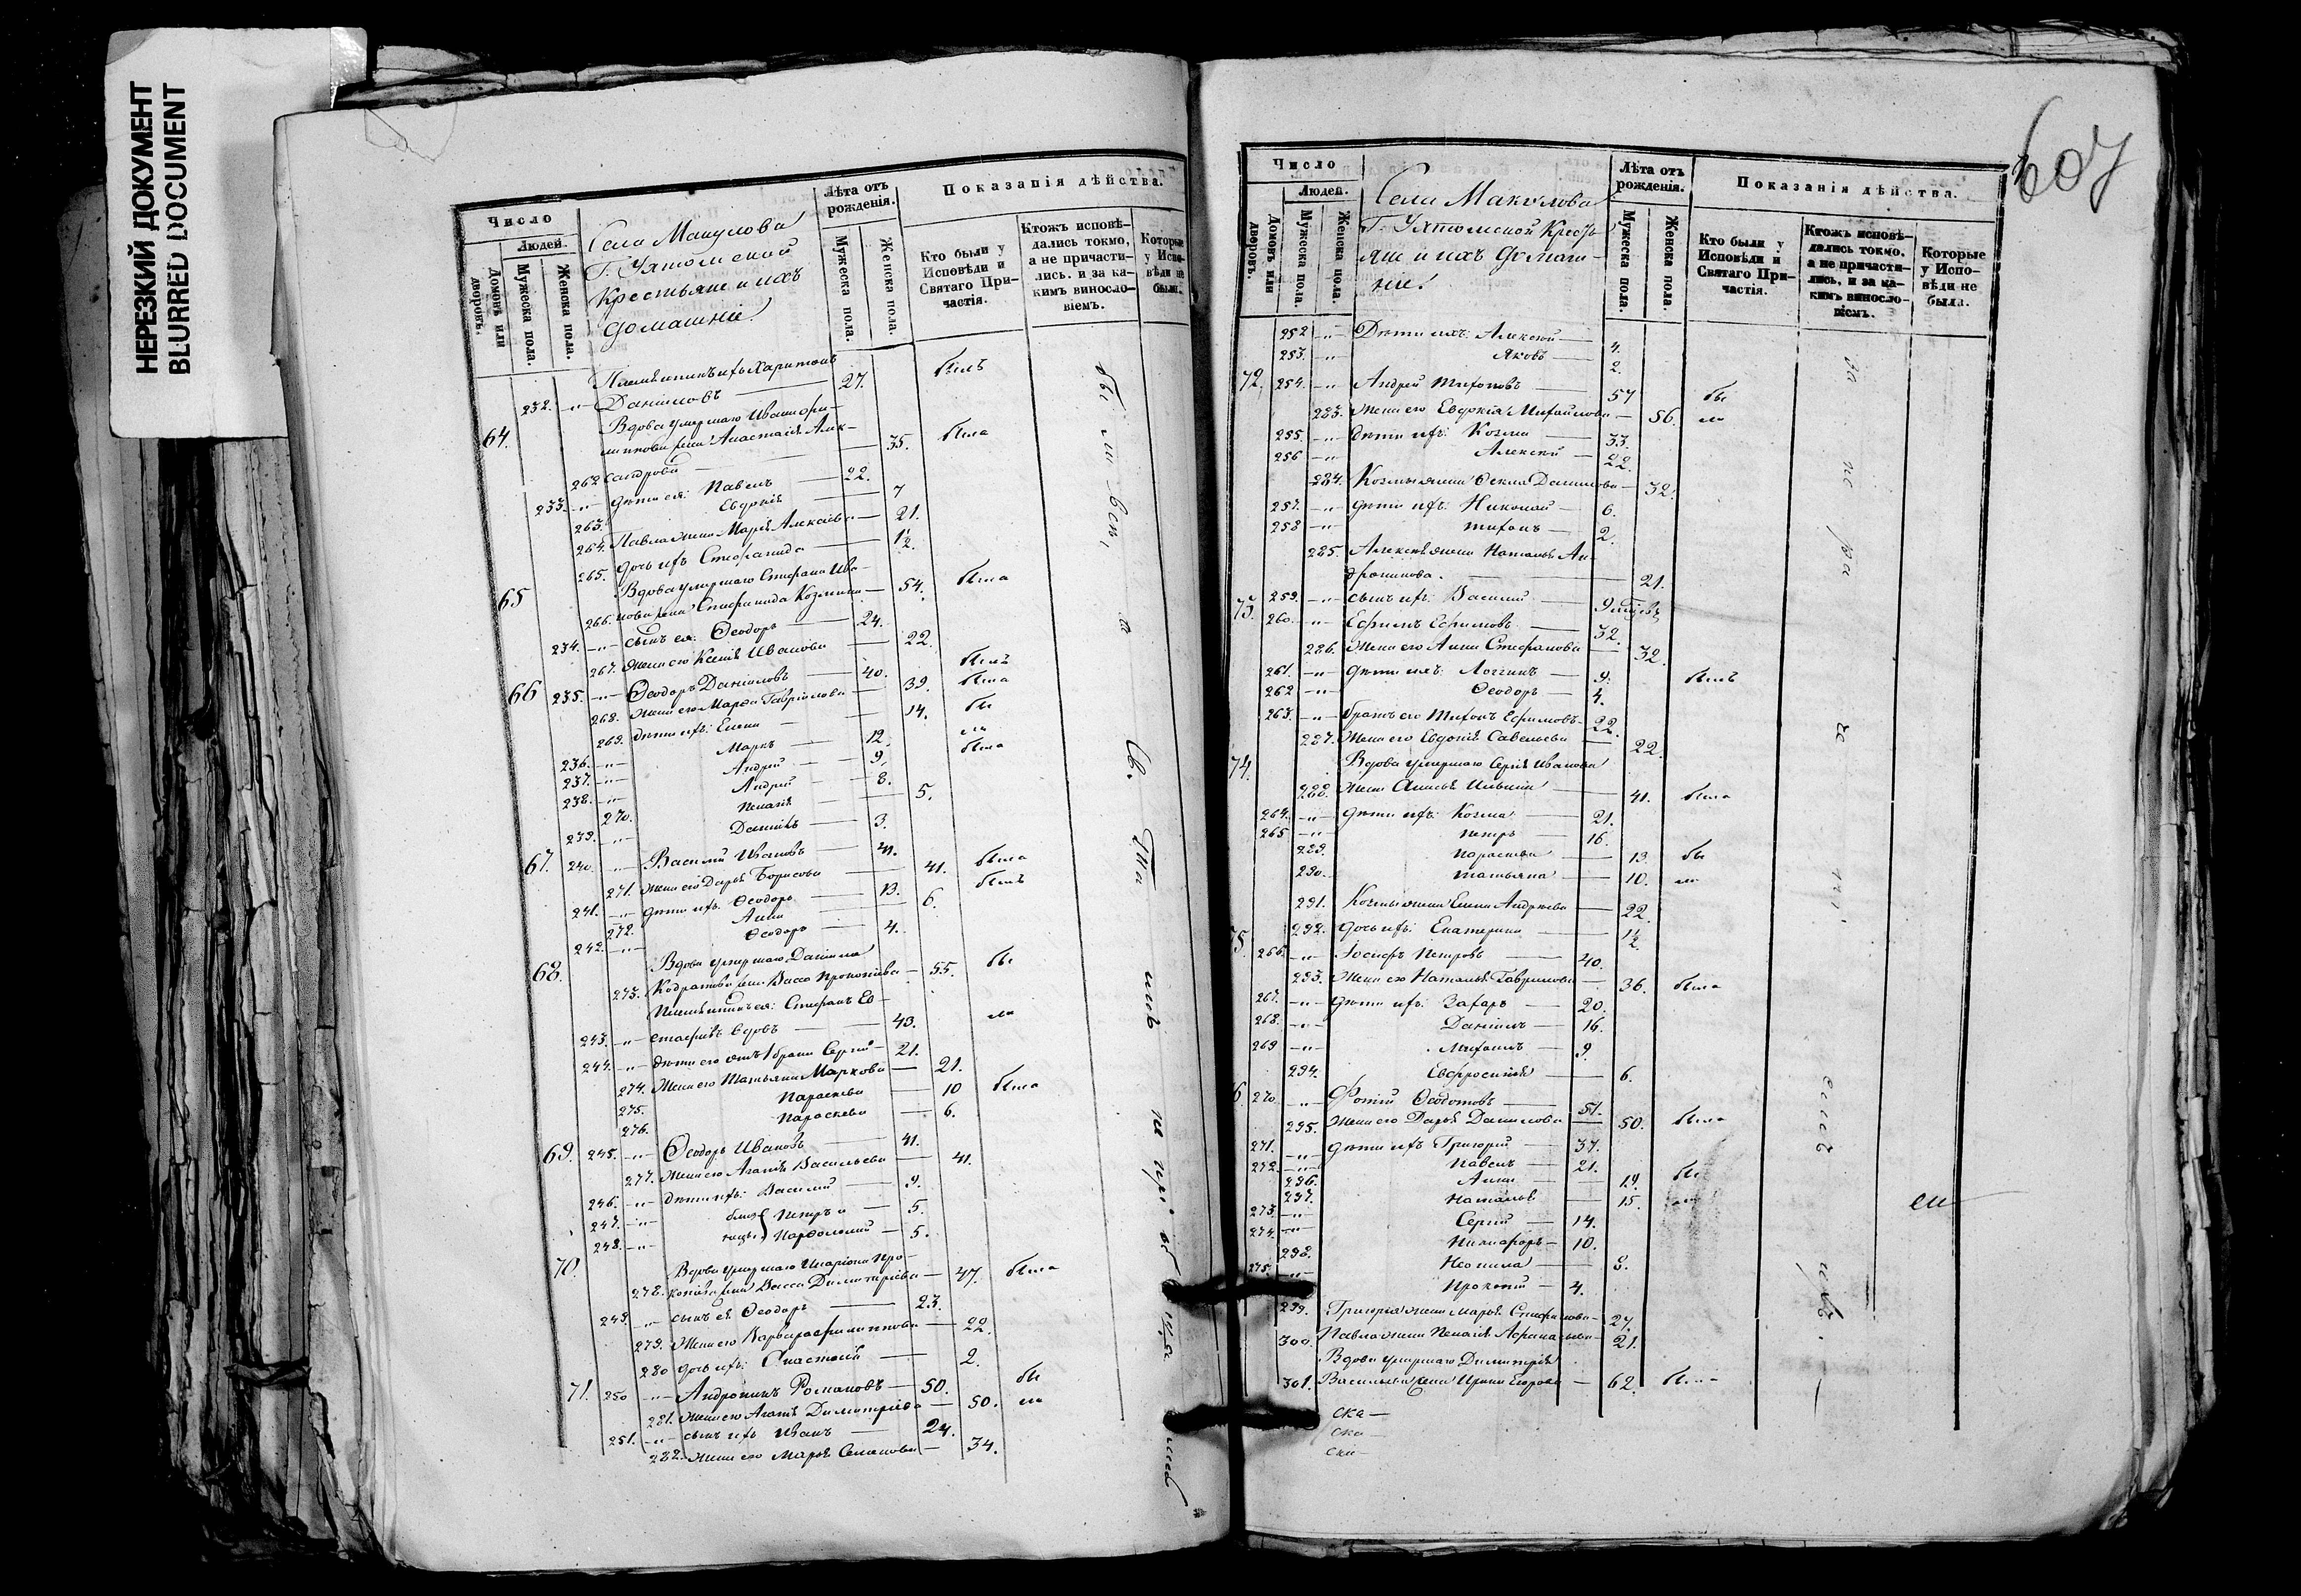 НЕРЕЗКИЙ ДОКУМЕНТ
BLURRED DOCUMENT
Число
Людей.
Домовъ или дворовъ.
Мужеска пола.
Женска пола.
Села Макулова
Г. Ухтомской
Крестьяне и ихъ
домашніе
Лѣта отъ рожденія.
Мужеска пола.
Женска пола.
Показанія дѣйства.
Кто были у Исповѣди и Святаго Причастія.
Ктожъ исповѣ-
дались токмо,
а не причасти-
лись. и за ка-
кимъ виносло-
віемъ.
Которые у Испо-
вѣди не были.
Племянникъ ихъ Харитонъ
232. —"— Даниловъ — 27. былъ
64. Вдова умершаго Ивана Фи-
липпова жена Анастасія Алек-
262 сандрова — 35. была
233. —"— дѣти ея: Павелъ — 22.
263. Евдокія — 7
264. Павла жена Марія Алексѣева — 21.
265. дочь ихъ Стефанида — 1/2.
65 Вдова умершаго Стефана Ива-
266. нова жена Стефанида Козмина — 54. была
234. —"— сынъ ея: Ѳеодоръ — 24.
267. жена его Ксенія Иванова — 22.
66 235. —"— Ѳеодоръ Даниловъ — 40. былъ
268. жена его Марѳа Гавриилова — 39. была
269. дѣти ихъ: Елена — 14. бы
236. —"— Маркъ — 12. ли
237. —"— Андрей — 9. была
238. —"— Андрей — 8.
270. Пелагія — 5.
239. —"— Даніилъ — 3.
67. 240. —"— Василій Ивановъ — 41.
271. жена его Дарья Борисова — 41. была
241. —"— дѣти ихъ Ѳеодоръ — 13. былъ
272. Анна — 6.
242. —"— Ѳеодоръ — 4.
68. Вдова умершаго Даніила
273. Кодратова жена Васса Прокопіева — 55. бы
Племянникъ ея: Стефанъ Ев-
243. —"— стафіевъ вдовъ — 43. ли
244. —"— дѣти его отъ 1 брака Сергій — 21.
274. жена его Татьяна Маркова — 21.
275. Параскева — 10 была
276. Параскева — 6.
69. 245. —"— Ѳеодоръ Ивановъ — 41.
277. жена его Агапія Васильева — 41.
246. —"— дѣти ихъ: Василій — 9.
247. —"— близ- Петръ и — 5.
248. —"— нецы Варѳоломей — 5.
70. Вдова умершаго Иларіона Про-
278. копіева жена Васса Димитріева — 47. была
249. —"— сынъ ея Ѳеодоръ — 23.
279. жена его Варвара Филиппова — 22.
280 дочь ихъ: Анастасія — 2.
71. 250 —"— Андроникъ Романовъ — 50. бы
281. жена его Агапія Димитріева — 50. ли
251. —"— сынъ ихъ Иванъ — 24.
282. жена его Марія Семенова — 34.
607
Число
Людей.
Домовъ или дворовъ.
Мужеска пола.
Женска пола.
Села Макулова
Г. Ухтомской Кресть-
яне и ихъ домаш-
ніе.
Лѣта отъ рожденія.
Мужеска пола.
Женска пола.
Показанія дѣйства.
Кто были у Исповѣди и Святаго При-
частія.
Ктожъ исповѣ-
дались токмо.
а не причасти-
лись, и за ка-
кимъ виносло-
віемъ.
Которые у Испо-
вѣди не была.
252 —"— Дѣти ихъ: Алексѣй — 4.
253. —"— Яковъ — 2.
72. 254. —"— Андрей Тихоновъ — 57 бы
283. жена его Евдокія Михайлова — 56. ли
255. —"— дѣти ихъ: Козма — 33.
256 —"— Алексѣй — 22.
284. Козмы жена Ѳекла Данилова — 32.
257. —"— дѣти ихъ: Николай — 6.
258 —"— Тихонъ — 2.
285. Алексѣя жена Наталья Ан-
дроникова. — 21.
259. —"— сынъ ихъ: Василій —
73. 260. —"— Ефимъ Ефимовъ — 32.
286. жена его Анна Стефанова — 32.
261. —"— дѣти ихъ: Логгинъ — 9. былъ
262 —"— Ѳеодоръ — 4.
263. —"— братъ его Тихонъ Ефимовъ — 22.
287. жена его Евдокія Савельева — 22.
74. Вдова умершаго Сергія Иванова
288. жена Анисья Ильина — 41. была
264. —"— дѣти ихъ: Козма — 21.
265 —"— Петръ — 16.
289. Параскева — 13. бы
290. Татьяна — 10. ли
291. Козмы жена Елена Андреева — 22.
292. дочь ихъ: Екатерина — 1/2.
75. 266. —"— Іосифъ Петровъ — 40.
293. жена его Наталья Гавриилова — 36. была
267. —"— дѣти ихъ: Захаръ — 20.
268. —"— Даніилъ — 16.
269 —"— Михаилъ — 9.
294. Евфросинія — 6.
6. 270 —"— Фотій Ѳедотовъ — 51.
295. жена его Дарья Данилова — 50. была
271. —"— дѣти ихъ Григорій — 37.
272. —"— Павелъ — 21.
296. Анна — 19. бы
297. Наталья — 15.
273. —"— Сергій — 14.
274. —"— Никифоръ — 10.
298. Неонила — 8.
275. —"— Прокопій — 4.
299. Григорія жена Марья Стефанова — 27.
300. Павла жена Пелагія Афанасьева — 21.
Вдова умершаго Димитрія
301. Васильева жена Ирина Егорова — 62. была
ска—
ска—
ска—